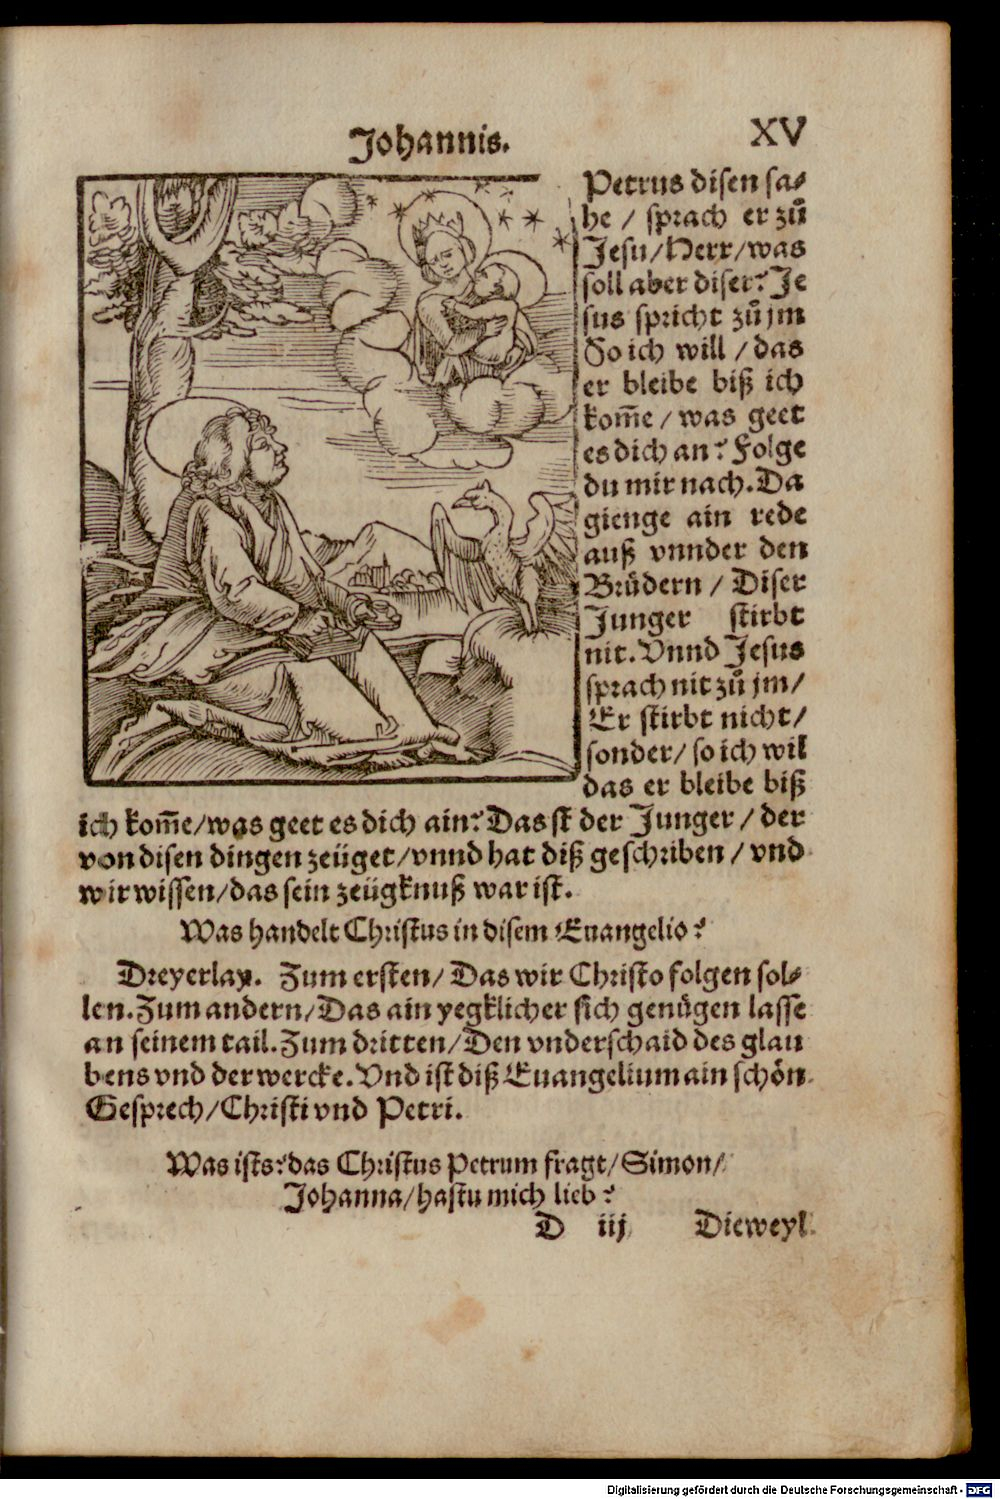 Johannis.
XV
Petrus disen sa⸗
he / sprach er zuͦ
Jesu/Herr/was
soll aber diser? Je
sus spricht zuͦ jm
So ich will / das
er bleibe biß ich
kom̃e / was geet
es dich an? Folge
du mir nach. Da
gienge ain rede
auß vnnder den
Bruͤdern / Diser
Junger stirbt
nit. Vnnd Jesus
sprach nit zuͦ jm/
Er stirbt nicht/
sonder/ so ich wil
das er bleibe biß
ich kom̃e/was geet es dich ain? Das st der Junger / der
von disen dingen zeüget/vnnd hat diß geschriben / vnd
wir wissen/das sein zeügknuß war ist.
Was handelt Christus in disem Euangelio?
Dreyerlay. Zum ersten/ Das wir Christo folgen sol⸗
len. Zum andern/Das ain yegklicher sich genuͤgen lasse
an seinem tail. Zum dritten/Den vnderschaid des glau
bens vnd der wercke. Vnd ist diß Euangelium ain schoͤn
Gesprech/Christi vnd Petri.
Was ists? das Christus Petrum fragt/Simon/
Johanna/hastu mich lieb?
D iij Dieweyl
Digitalisierung gefördert durch die Deutsche Forschungsgemeinschaft - DFG